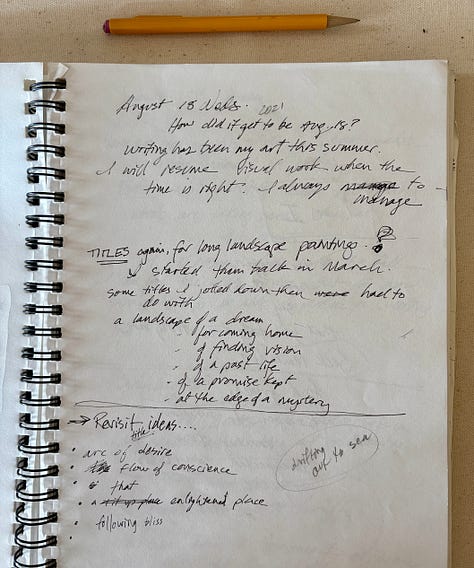 August 18 Weds. 2021
How did it get to be Aug. 18?
Writing has been my art this summer.
I will resume visual work when the
time is right. I always to
manage
TITLES again, for long landscape paintings.
started them back in March.
some titles I jotted down then were had to
do with
a landscape of a dream
- for coming home
- of finding vision
- of a past life
- of a promise kept
- at the edge of a mystery
→ Revisit title ideas....
• arc of desire
• flow of conscience
• that
• a enlightened place
• following bliss
•
drifting
out to sea